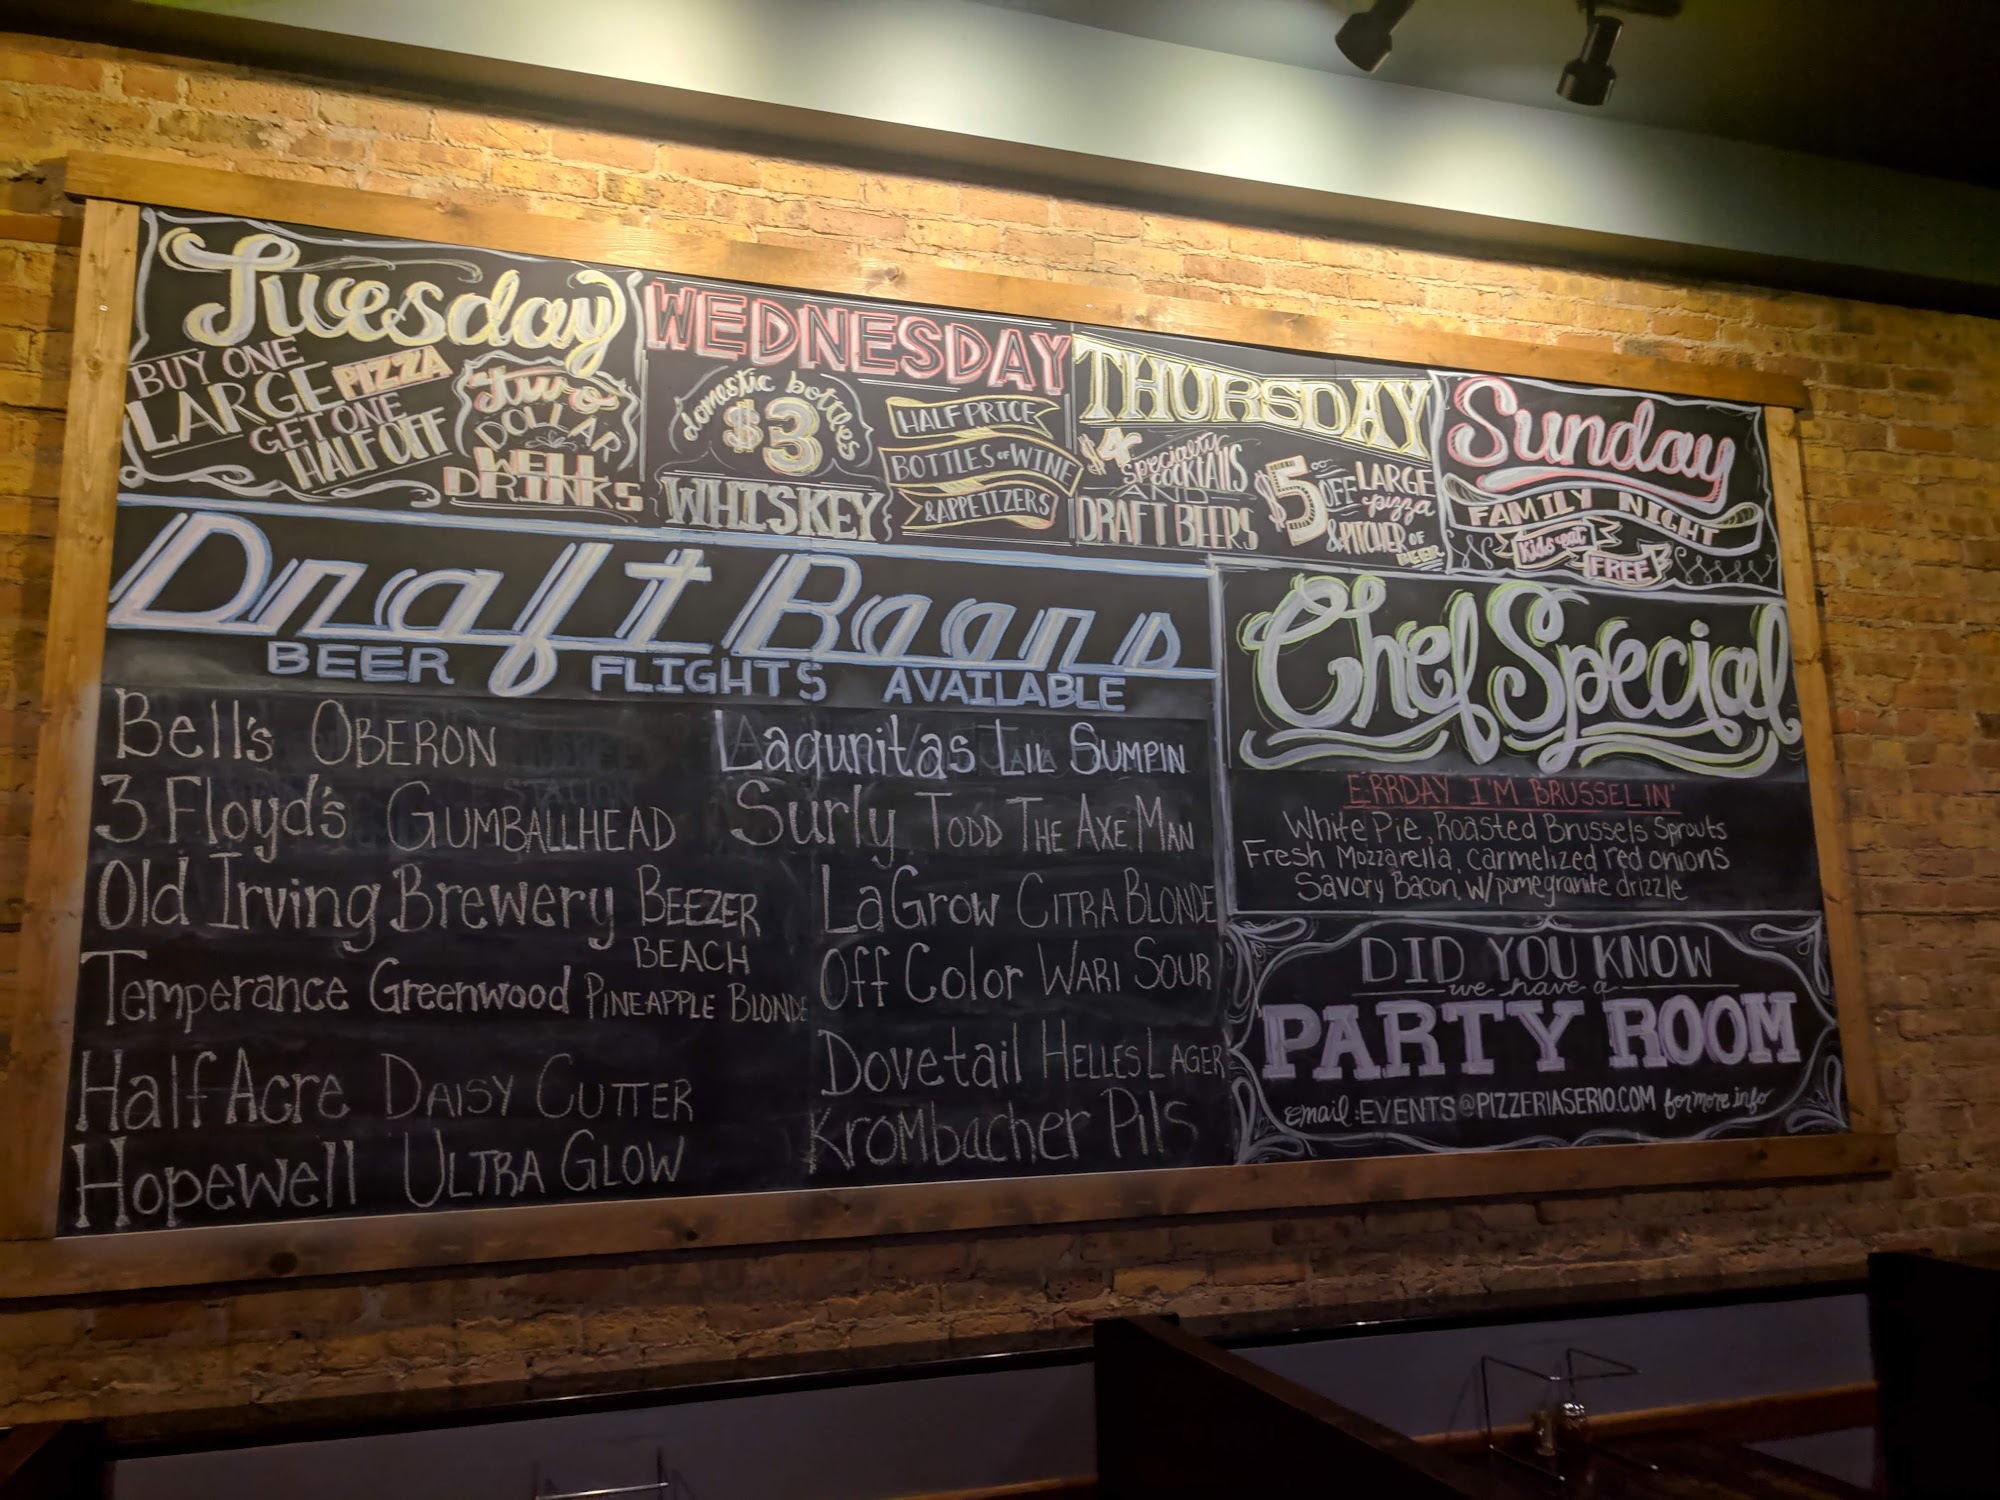 Tuesday
BUY ONE
LARGE PIZZA
GET ONE
HALF OFF
Two
DOLLAR
WELL
DRINKS
WEDNESDAY
domestic bottles
$3
WHISKEY
HALF PRICE
BOTTLES OF WINE
& APPETIZERS
THURSDAY
$4 specialty
COCKTAILS
AND
DRAFT BEERS
$5.00 OFF LARGE
pizza
& PITCHER OF
BEER
Sunday
FAMILY NIGHT
Kids eat
FREE
Draft Beers
BEER FLIGHTS AVAILABLE
Bell's OBERON
3 Floyd's GUMBALLHEAD
Old Irving Brewery BEEZER
BEACH
Temperance Greenwood PINEAPPLE BLONDE
Half Acre DAISY CUTTER
Hopewell ULTRA GLOW
Lagunitas LIL SUMPIN
Surly TODD THE AXE MAN
LaGrow CITRA BLONDE
Off Color WARI SOUR
Dovetail HELLES LAGER
Krombacher Pils
Chef Special
E'RRDAY I'M BRUSSELIN'
White Pie, Roasted Brussels Sprouts
Fresh Mozzarella, carmelized red onions
Savory Bacon w/pomegranite drizzle
DID YOU KNOW
we have a
PARTY ROOM
email: EVENTS@PIZZERIASERIO.COM for more info